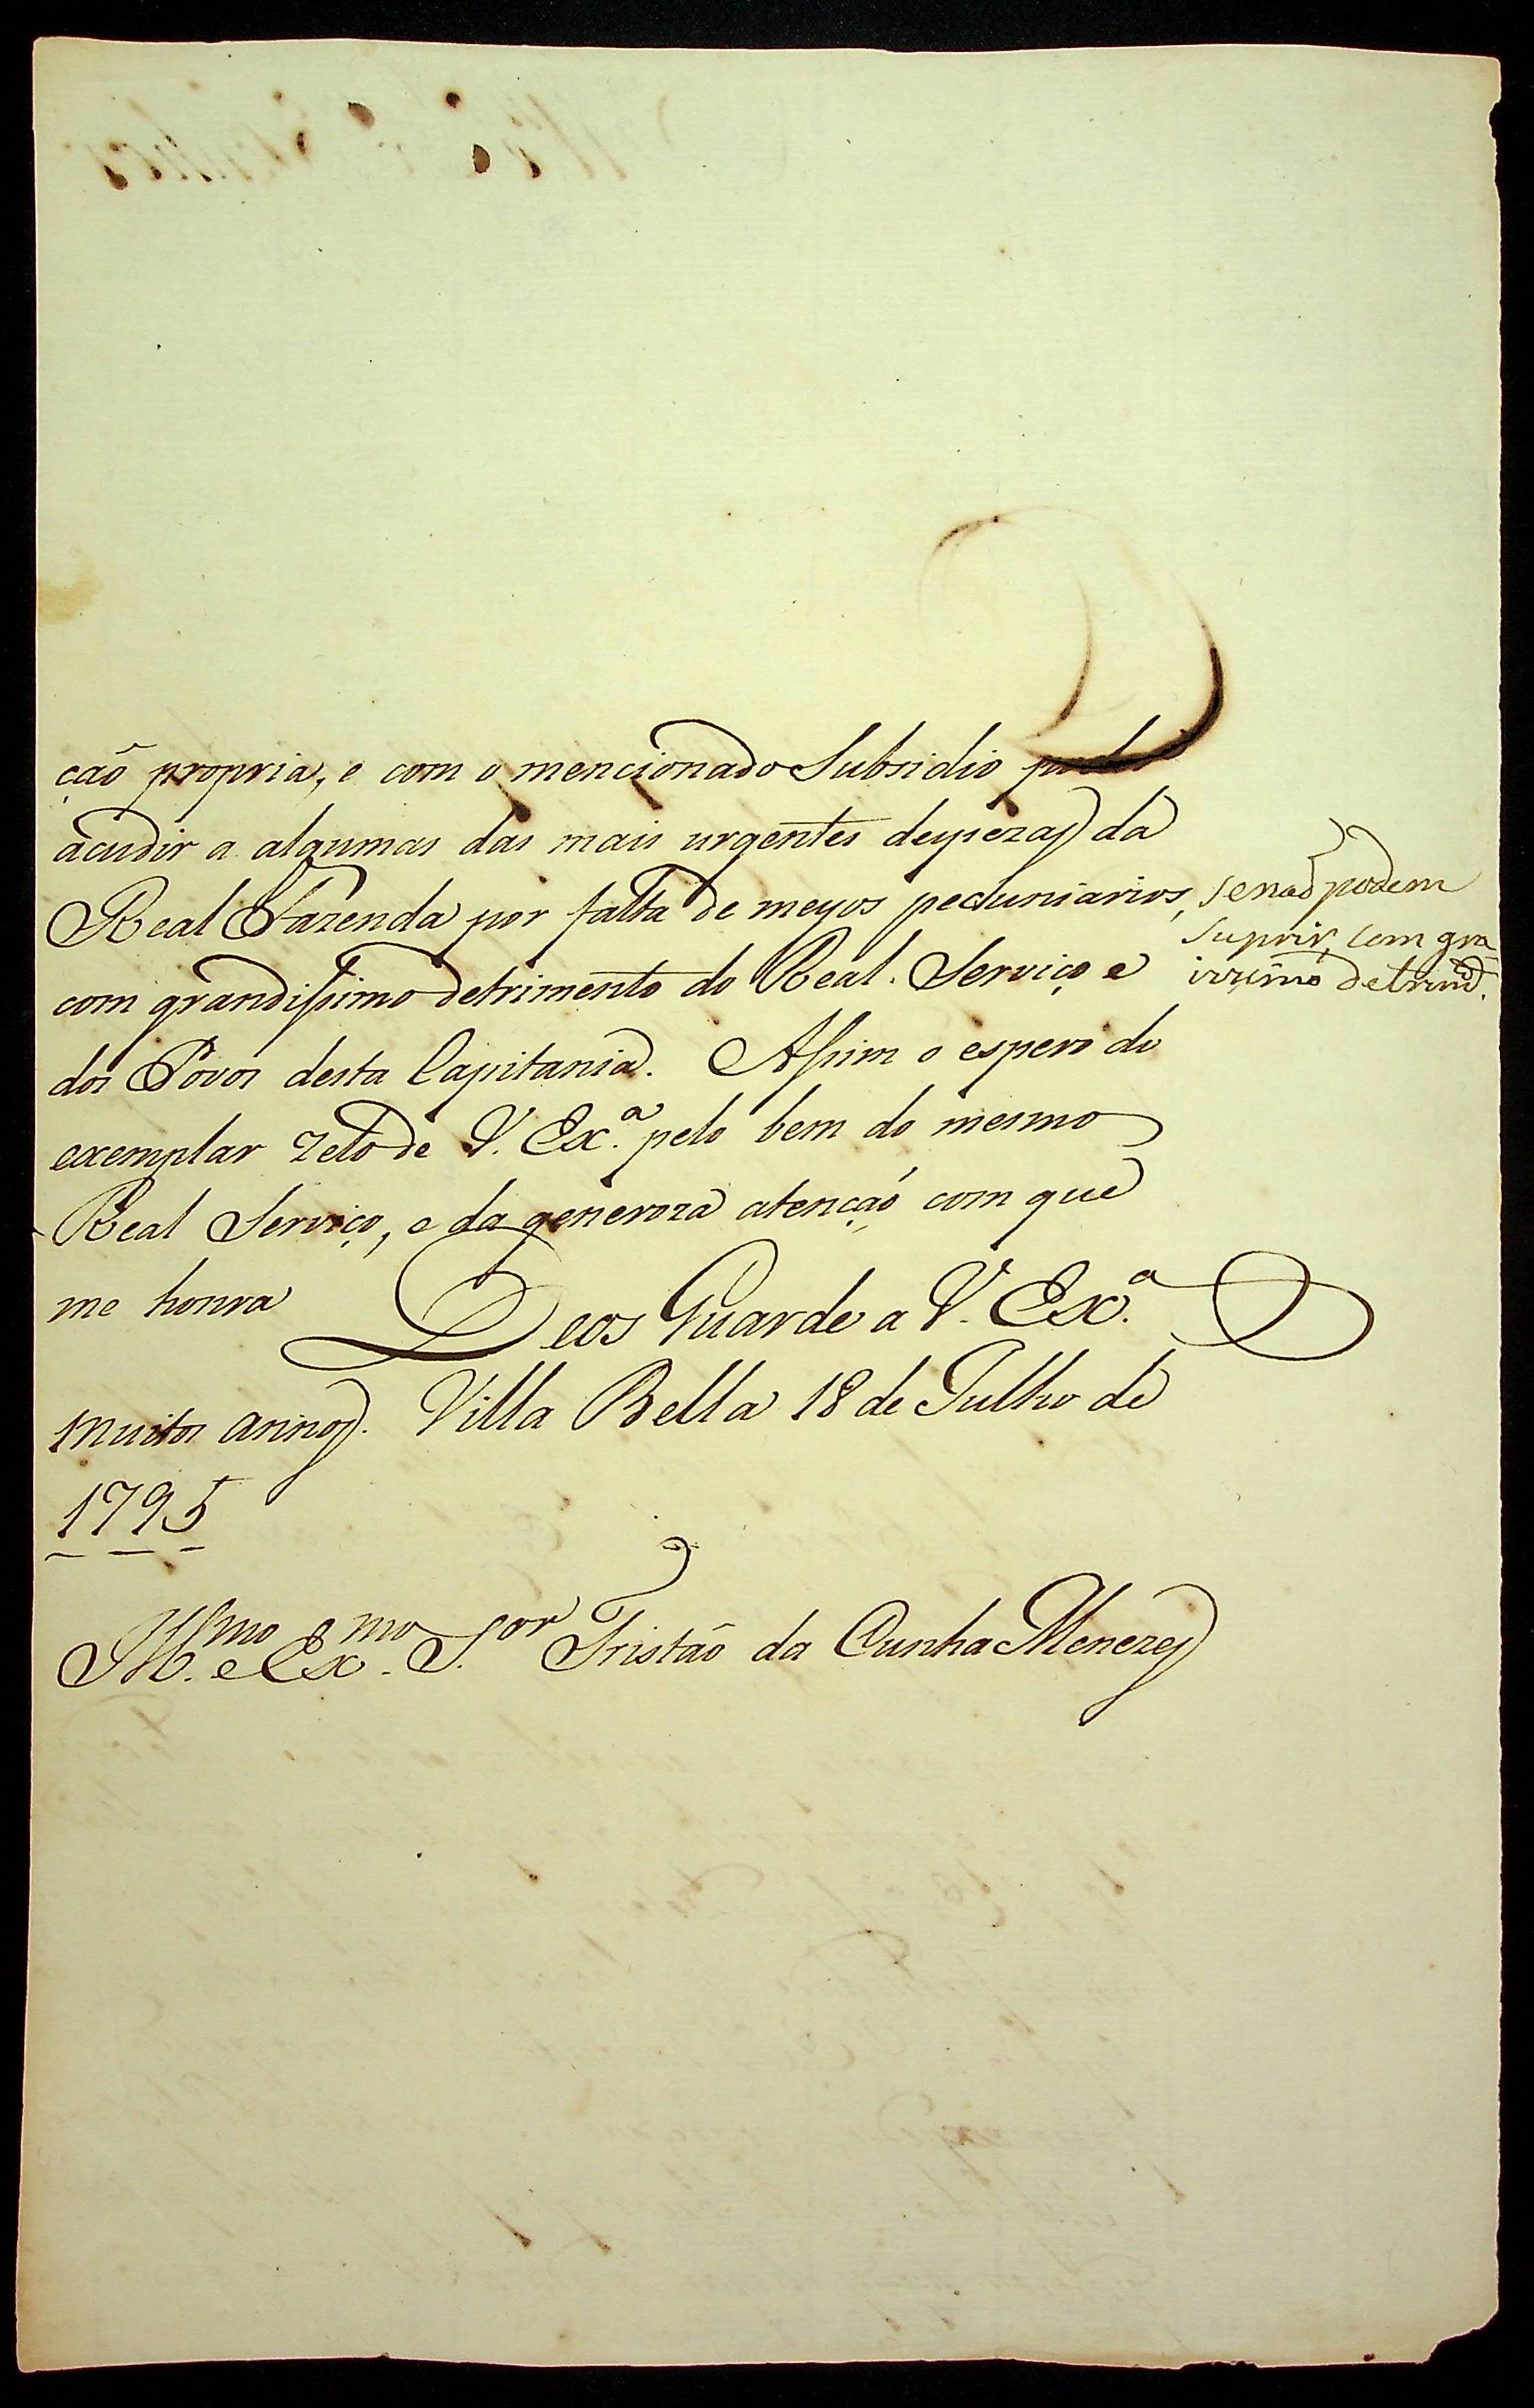 çaõ propria, e com o mencionado Subsidio
acudir a algumas das mais urgentes despezas da
Real Fazenda por falta de meyos pecuniarios,
com grandissimo detrimento do Real Serviço e
dos Povos desta Capitania. Assim o espero do
exemplar zelo de V. Ex.ª pelo bem do mesmo
Real Serviço, e da generoza atençaõ com que
me honra Deos Guarde a V. Ex.ª
muitos annos. Villa Bella 18 de Julho de
1795
Ill.mo e Ex.mo S.or Tristaõ da Cunha Menezes
senaõ podem
suprir, sem gra